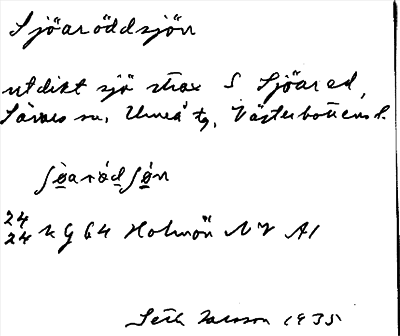 Sjöaröddsjön
utdikt sjö strax S Sjöared,
Sävars sn, Umeå tg, Västerbottens l.
ʃö̀aròdʃö̀n
24
24 k G 64 Holmön NV A1
Seth Larsson 1935